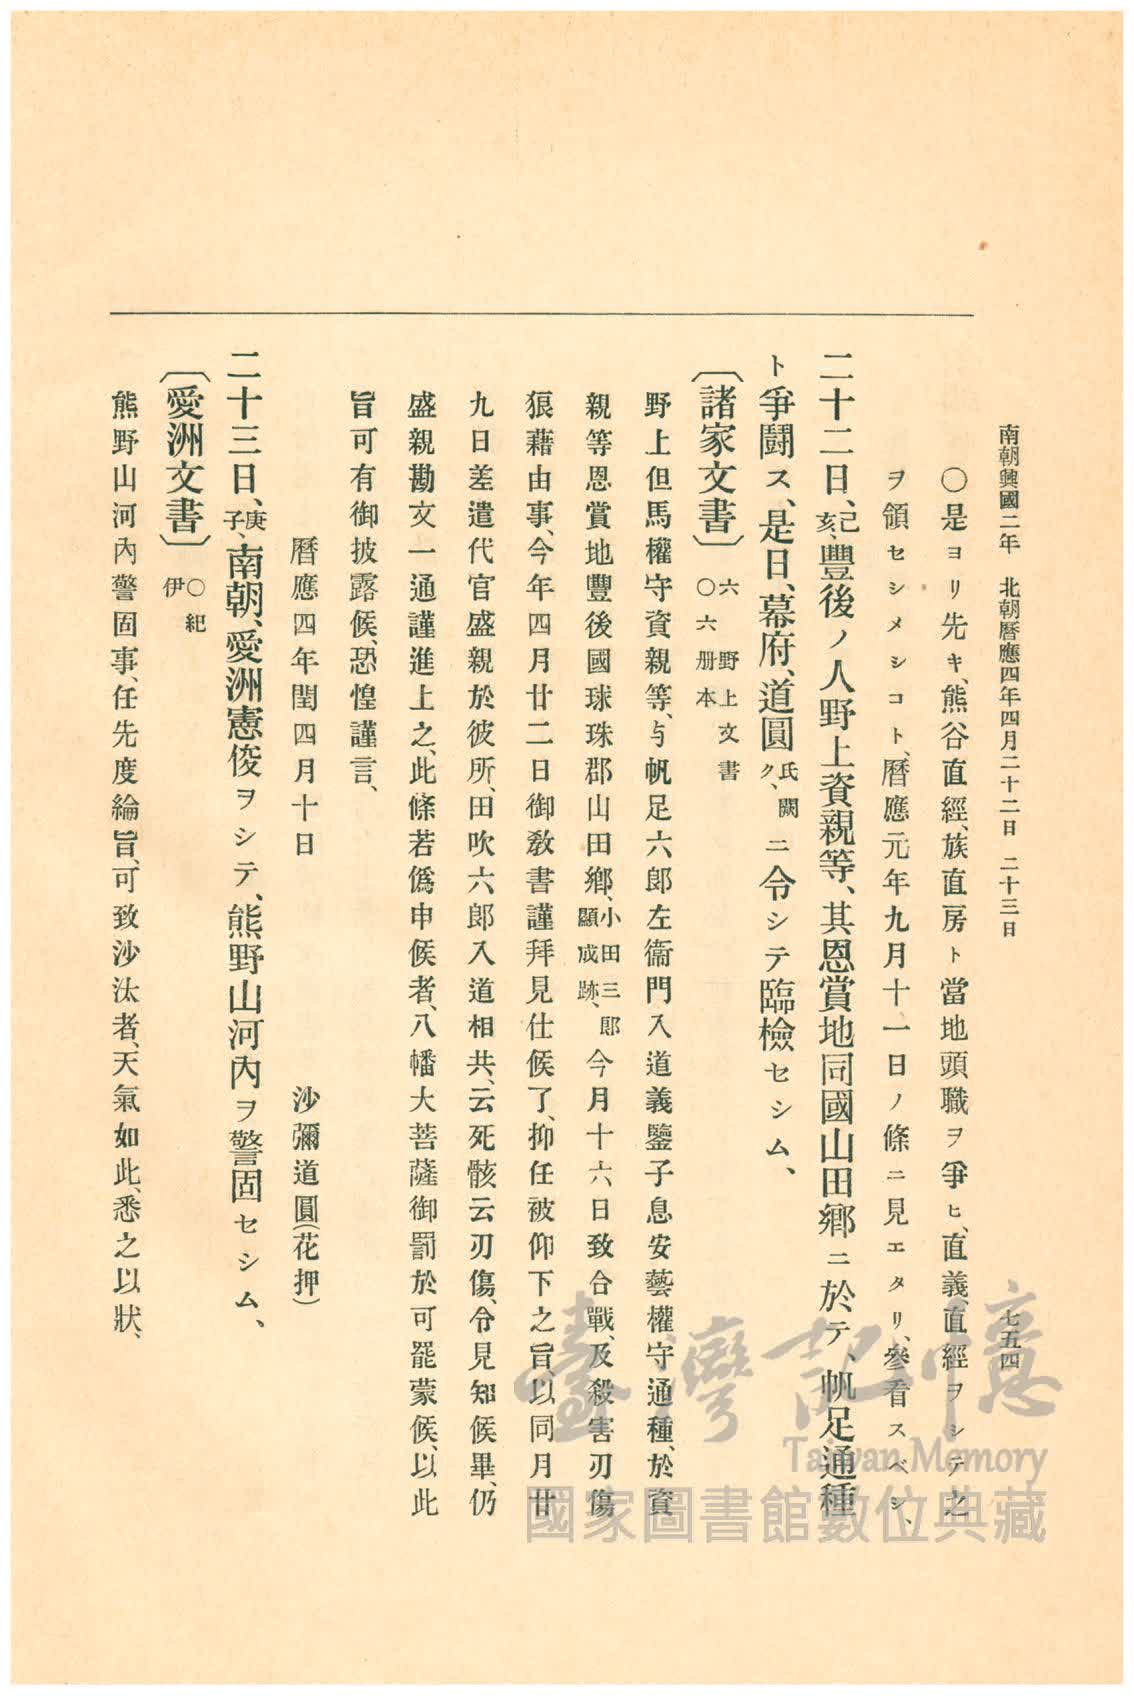 南朝興國二年　北朝曆應四年四月二十二日　二十三日　七五四
〇是ヨリ先キ、熊谷直經、族直房ト當地頭職ヲ爭ヒ、直義、直經ヲシテ之
ヲ領セシメシコト、曆應元年九月十一日ノ條ニ見エタリ、參看スベシ、
二十二日、己亥、豐後ノ人野上資親等、其恩賞地同國山田鄕ニ於テ、帆足通種
ト爭鬪ス、是日、幕府、道圓氏闕ク、ニ令シテ臨檢セシム、
〔諸家文書〕六　野上文書　〇六册本
野上但馬權守資親等、与帆足六郞左衞門入道義鑒子息安藝權守通種、於資
親等恩賞地豐後國球珠郡山田鄕、小田三郞顯成跡、今月十六日致合戰、及殺害刃傷
狼藉由事、今年四月廿二日御敎書謹拜見仕候了、抑任被仰下之旨、以同月廿
九日差遣代官盛親於彼所、田吹六郞入道相共、云死骸云刃傷、令見知候畢、仍
盛親勘文一通謹進上之、此條若僞申候者、八幡大菩薩御罰於可罷蒙候、以此
旨可有御披露候、恐惶謹言、
曆應四年閏四月十日　沙彌道圓(花押)
二十三日、庚子、南朝、愛洲憲俊ヲシテ、熊野山河內ヲ警固セシム、
〔愛洲文書〕〇紀伊
熊野山河內警固事、任先度綸旨、可致沙汰者、天氣如此、悉之以狀、
臺灣記憶
Taiwan Memory
國家圖書館數位典藏